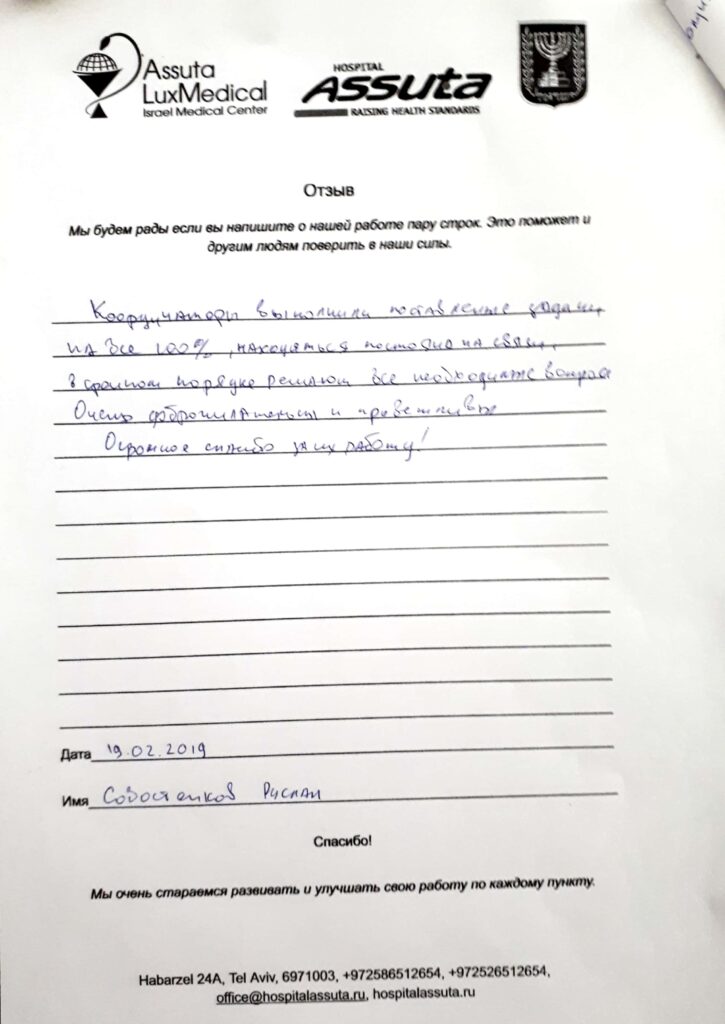 Assuta
LuxMedical
Israel Medical Center
HOSPITAL
ASSUTA
RAISING HEALTH STANDARDS
Отзыв
Мы будем рады если вы напишите о нашей работе пару строк. Это поможет и
другим людям поверить в наши силы.
Координаторы выполнили поставленные задачи
на все 100%, находяться постояно на связи,
в срочном порядке решают все необходимые вопросы
Очень доброжилательны и приветливые
Огромное спасибо за их работу!
Дата 19.02.2019
Имя Руслан
Спасибо!
Мы очень стараемся развивать и улучшать свою работу по каждому пункту.
Habarzel 24A, Tel Aviv, 6971003, +972586512654, +972526512654,
office@hospitalassuta.ru, hospitalassuta.ru